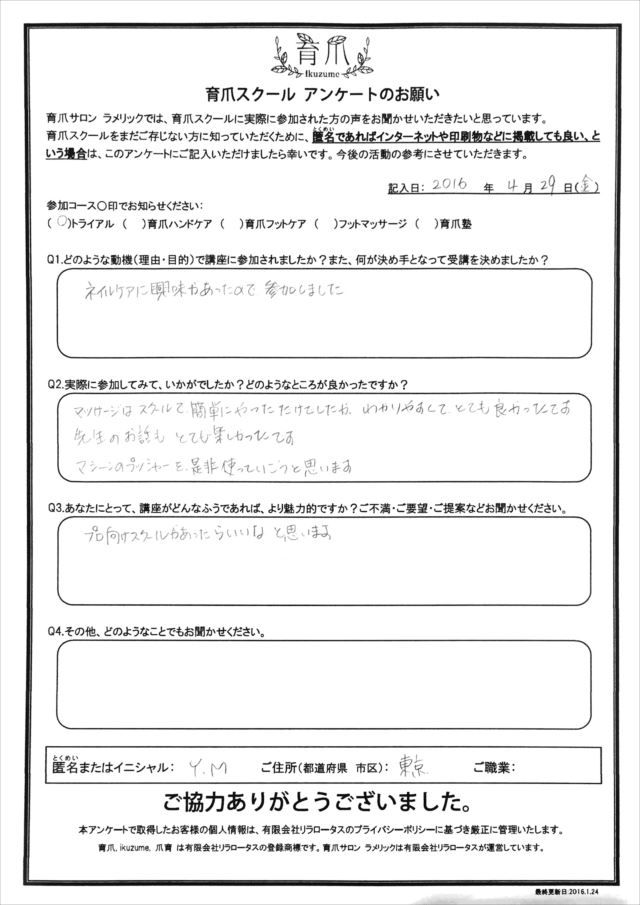 育爪
Ikuzume
育爪スクール アンケートのお願い
育爪サロン ラメリックでは、育爪スクールに実際に参加された方の声をお聞かせいただきたいと思っています。
育爪スクールをまだご存じない方に知っていただくために、匿名であればインターネットや印刷物などに掲載しても良い、と
いう場合は、このアンケートにご記入いただけましたら幸いです。今後の活動の参考にさせていただきます。
記入日: 2016 年 4 月 29 日(金)
参加コース〇印でお知らせください:
(〇)トライアル ( )育爪ハンドケア ( )育爪フットケア ( )フットマッサージ ( )育爪塾
Q1.どのような動機(理由・目的)で講座に参加されましたか?また、何が決め手となって受講を決めましたか?
ネイルケアに興味があったので、参加しました
Q2.実際に参加してみて、いかがでしたか?どのようなところが良かったですか?
マッサージはスクールで簡単にやっただけでしたが、わかりやすくて、とても良かったです
先生のお話も とても楽しかったです
マシーンのプッシャーを、是非使っていこうと思います
Q3.あなたにとって、講座がどんなふうであれば、より魅力的ですか?ご不満・ご要望・ご提案などお聞かせください。
プロ向けスクールがあったらいいな と思います
Q4.その他、どのようなことでもお聞かせください。
とくめい
匿名またはイニシャル: Y.M ご住所(都道府県 市区): 東京 ご職業:
ご協力ありがとうございました。
本アンケートで取得したお客様の個人情報は、有限会社リラロータスのプライバシーポリシーに基づき厳正に管理いたします。
育爪, ikuzume, 爪育 は有限会社リラロータスの登録商標です。育爪サロン ラメリックは有限会社リラロータスが運営しています。
最終更新日:2016.1.24